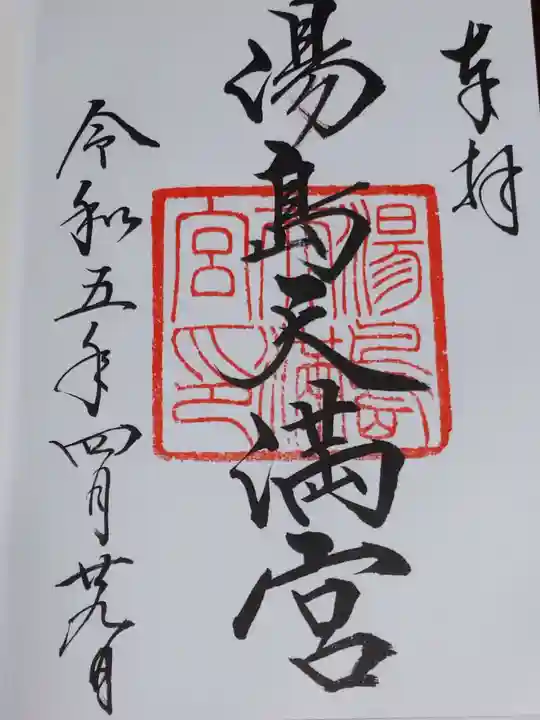 奉拝
湯島天満宮
湯島天満宮印
令和五年四月廿九日